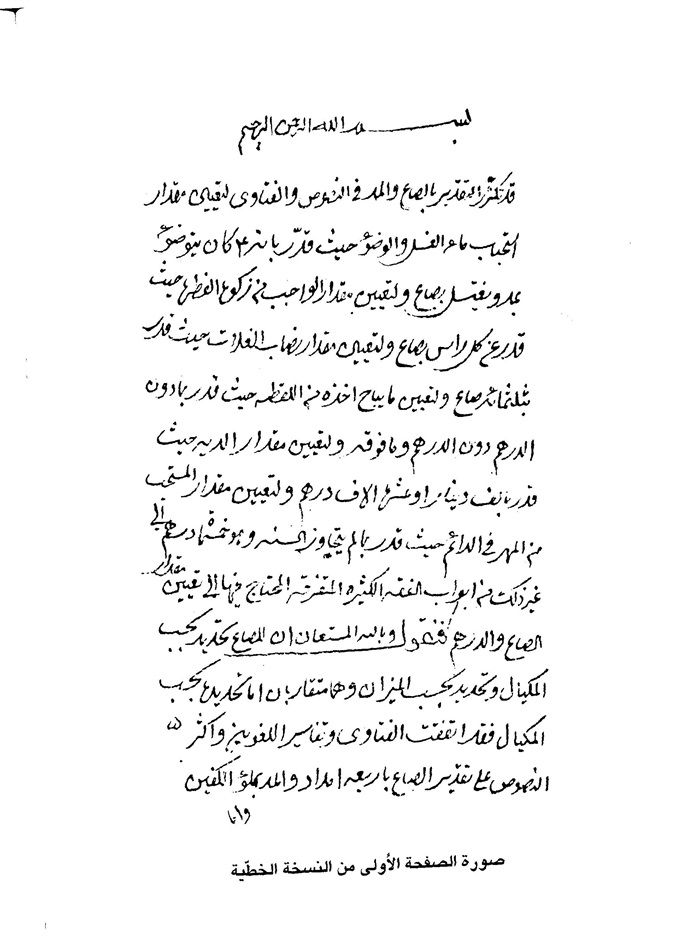 بسم الله الرحمن الرحيم
قد تكثر التقدير بالصاع والمد في النصوص والفتاوى لتعيين مقدار
استحباب ماء الغسل والوضوء حيث قدّر بانه كان يتوضؤ
بمد ويغتسل بصاع ولتعيين مقدار الواجب من زكوة الفطرة حيث
قدر عن كل راس بصاع ولتعيين مقدار نصاب الغلات حيث قدر
بثلثمائة صاع ولتعيين ما يباح اخذه من اللقطه حيث قدر بما دون
الدرهم دون الدرهم وما فوقه ولتعيين مقدار الديه حيث
قدر بالف دينار او عشرة الاف درهم ولتعيين مقدار المستحب
من المهر في الدائم حيث قدر بما لم يتجاوز السنه وهو خمسمائة درهم الى
غير ذلك من ابواب الفقه الكثيره المتفرقه المحتاج فيها الى تعيين مقدار
الصاع والدرهم فنقول وبالله المستعان ان للصاع تحديد بحسب
المكيال وتحديد بحسب الميزان وهما متقاربان اما تحديدها بحسب
المكيال فقد اتفقت الفتاوى وتفاسير اللغويين واكثر
النصوص على تقدير الصاع باربعه امداد والمد بملؤ الكفين
واما
صورة الصفحة الأولى من النسخة الخطّية